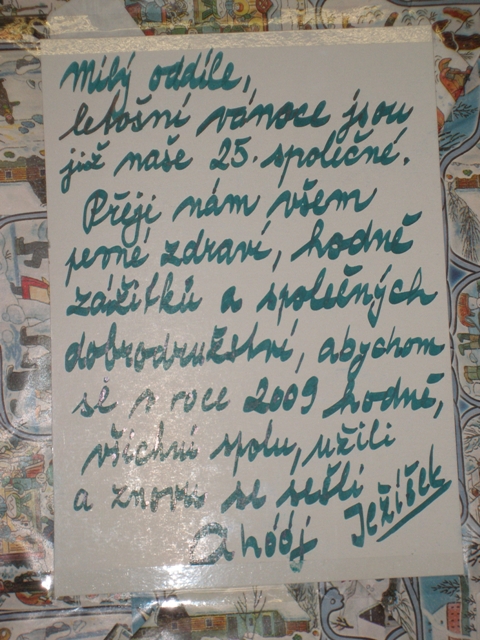 Milý oddíle,
letošní vánoce jsou
již naše 25. společné.
Přeji nám všem
pevné zdraví, hodně
zážitků a společných
dobrodružství, abychom
se v roce 2009 hodně,
všichni spolu, užili
a znovu se sešli
Ahóój Ježíšek